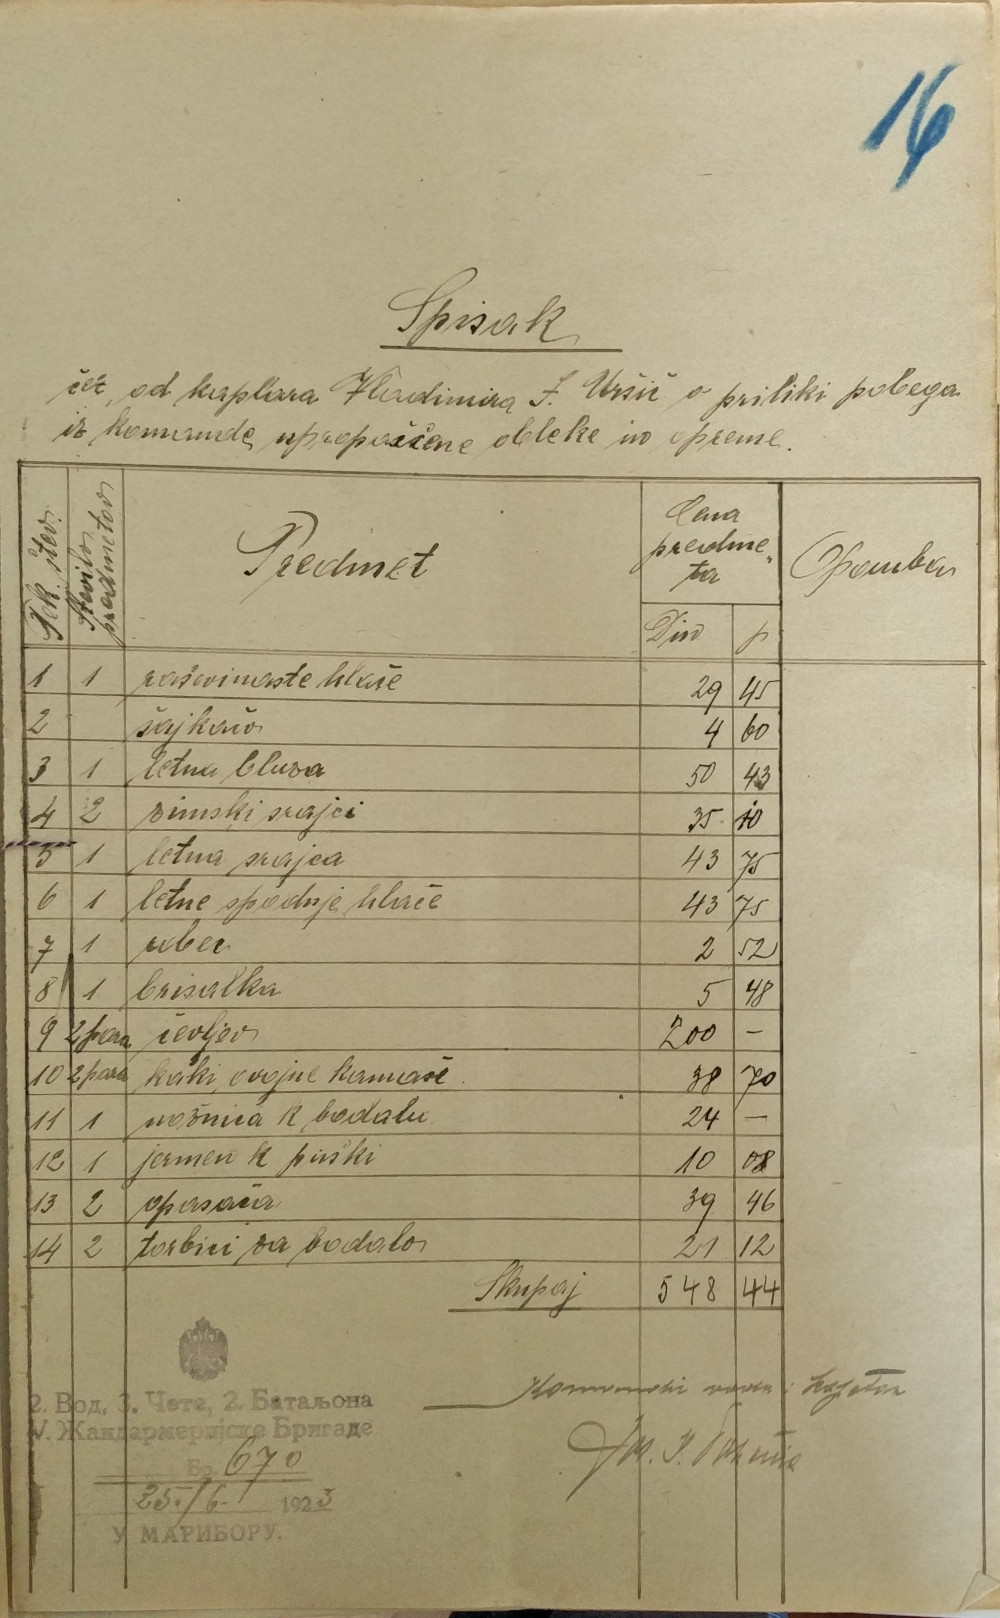 16
Spisak
čez, od kaplara Vladimira F. Uršič o priliki pobega
iz komande, upropaščene obleke in opreme.
Tek. štev.
Število predmetov
Predmet
Cena predme„ ta
Opomba
Din p
1 1 raševinaste hlače 29 45
2 šajkača 4 60
3 1 letna bluza 50 43
4 2 zimski srajci 35 10
5 1 letna srajca 43 75
6 1 letne spodnje hlače 43 75
7 1 robec 2 52
8 1 brisalka 5 48
9 2 para čevljev 200 —
10 2 para kaki, ovojne kamaše 38 70
11 1 nožnica k bodalu 24 —
12 1 jermen k puški 10 08
13 2 opasača 39 46
14 2 torbici za bodalo 21 12
Skupaj 548 44
2. Вод, 3. Чете, 2. Батаљона
V. Жандармеријске Бригаде
Бр. 670
25./6. 1923
У МАРИБОРУ.
Komandir voda